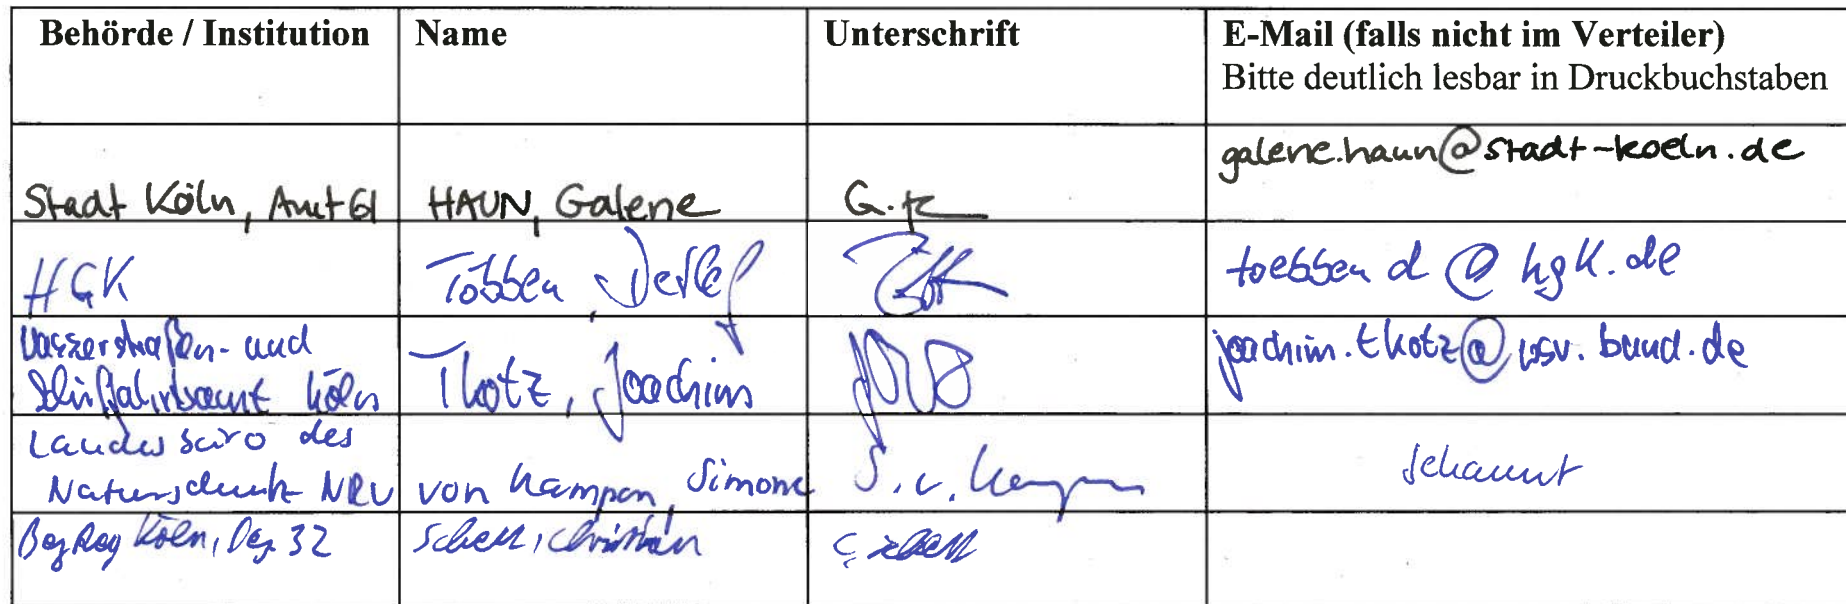 Behörde / Institution Name Unterschrift E-Mail (falls nicht im Verteiler)
Bitte deutlich lesbar in Druckbuchstaben
galene.haun@stadt-koeln.de
Stadt Köln, Amt 61 HAUN, Galene G.
HGK Többen, Detlef toebben d @ hgk.de
Wasserstraßen- und
Schiffahrtsamt Köln Tkotz, Joachim joachim.tkotz@wsv.bund.de
Landesbüro des
Naturschutz NRW von Kampen, Simone S. v. Kampen bekannt
BezReg Köln, Dez. 32 Schell, Christian C. Schell